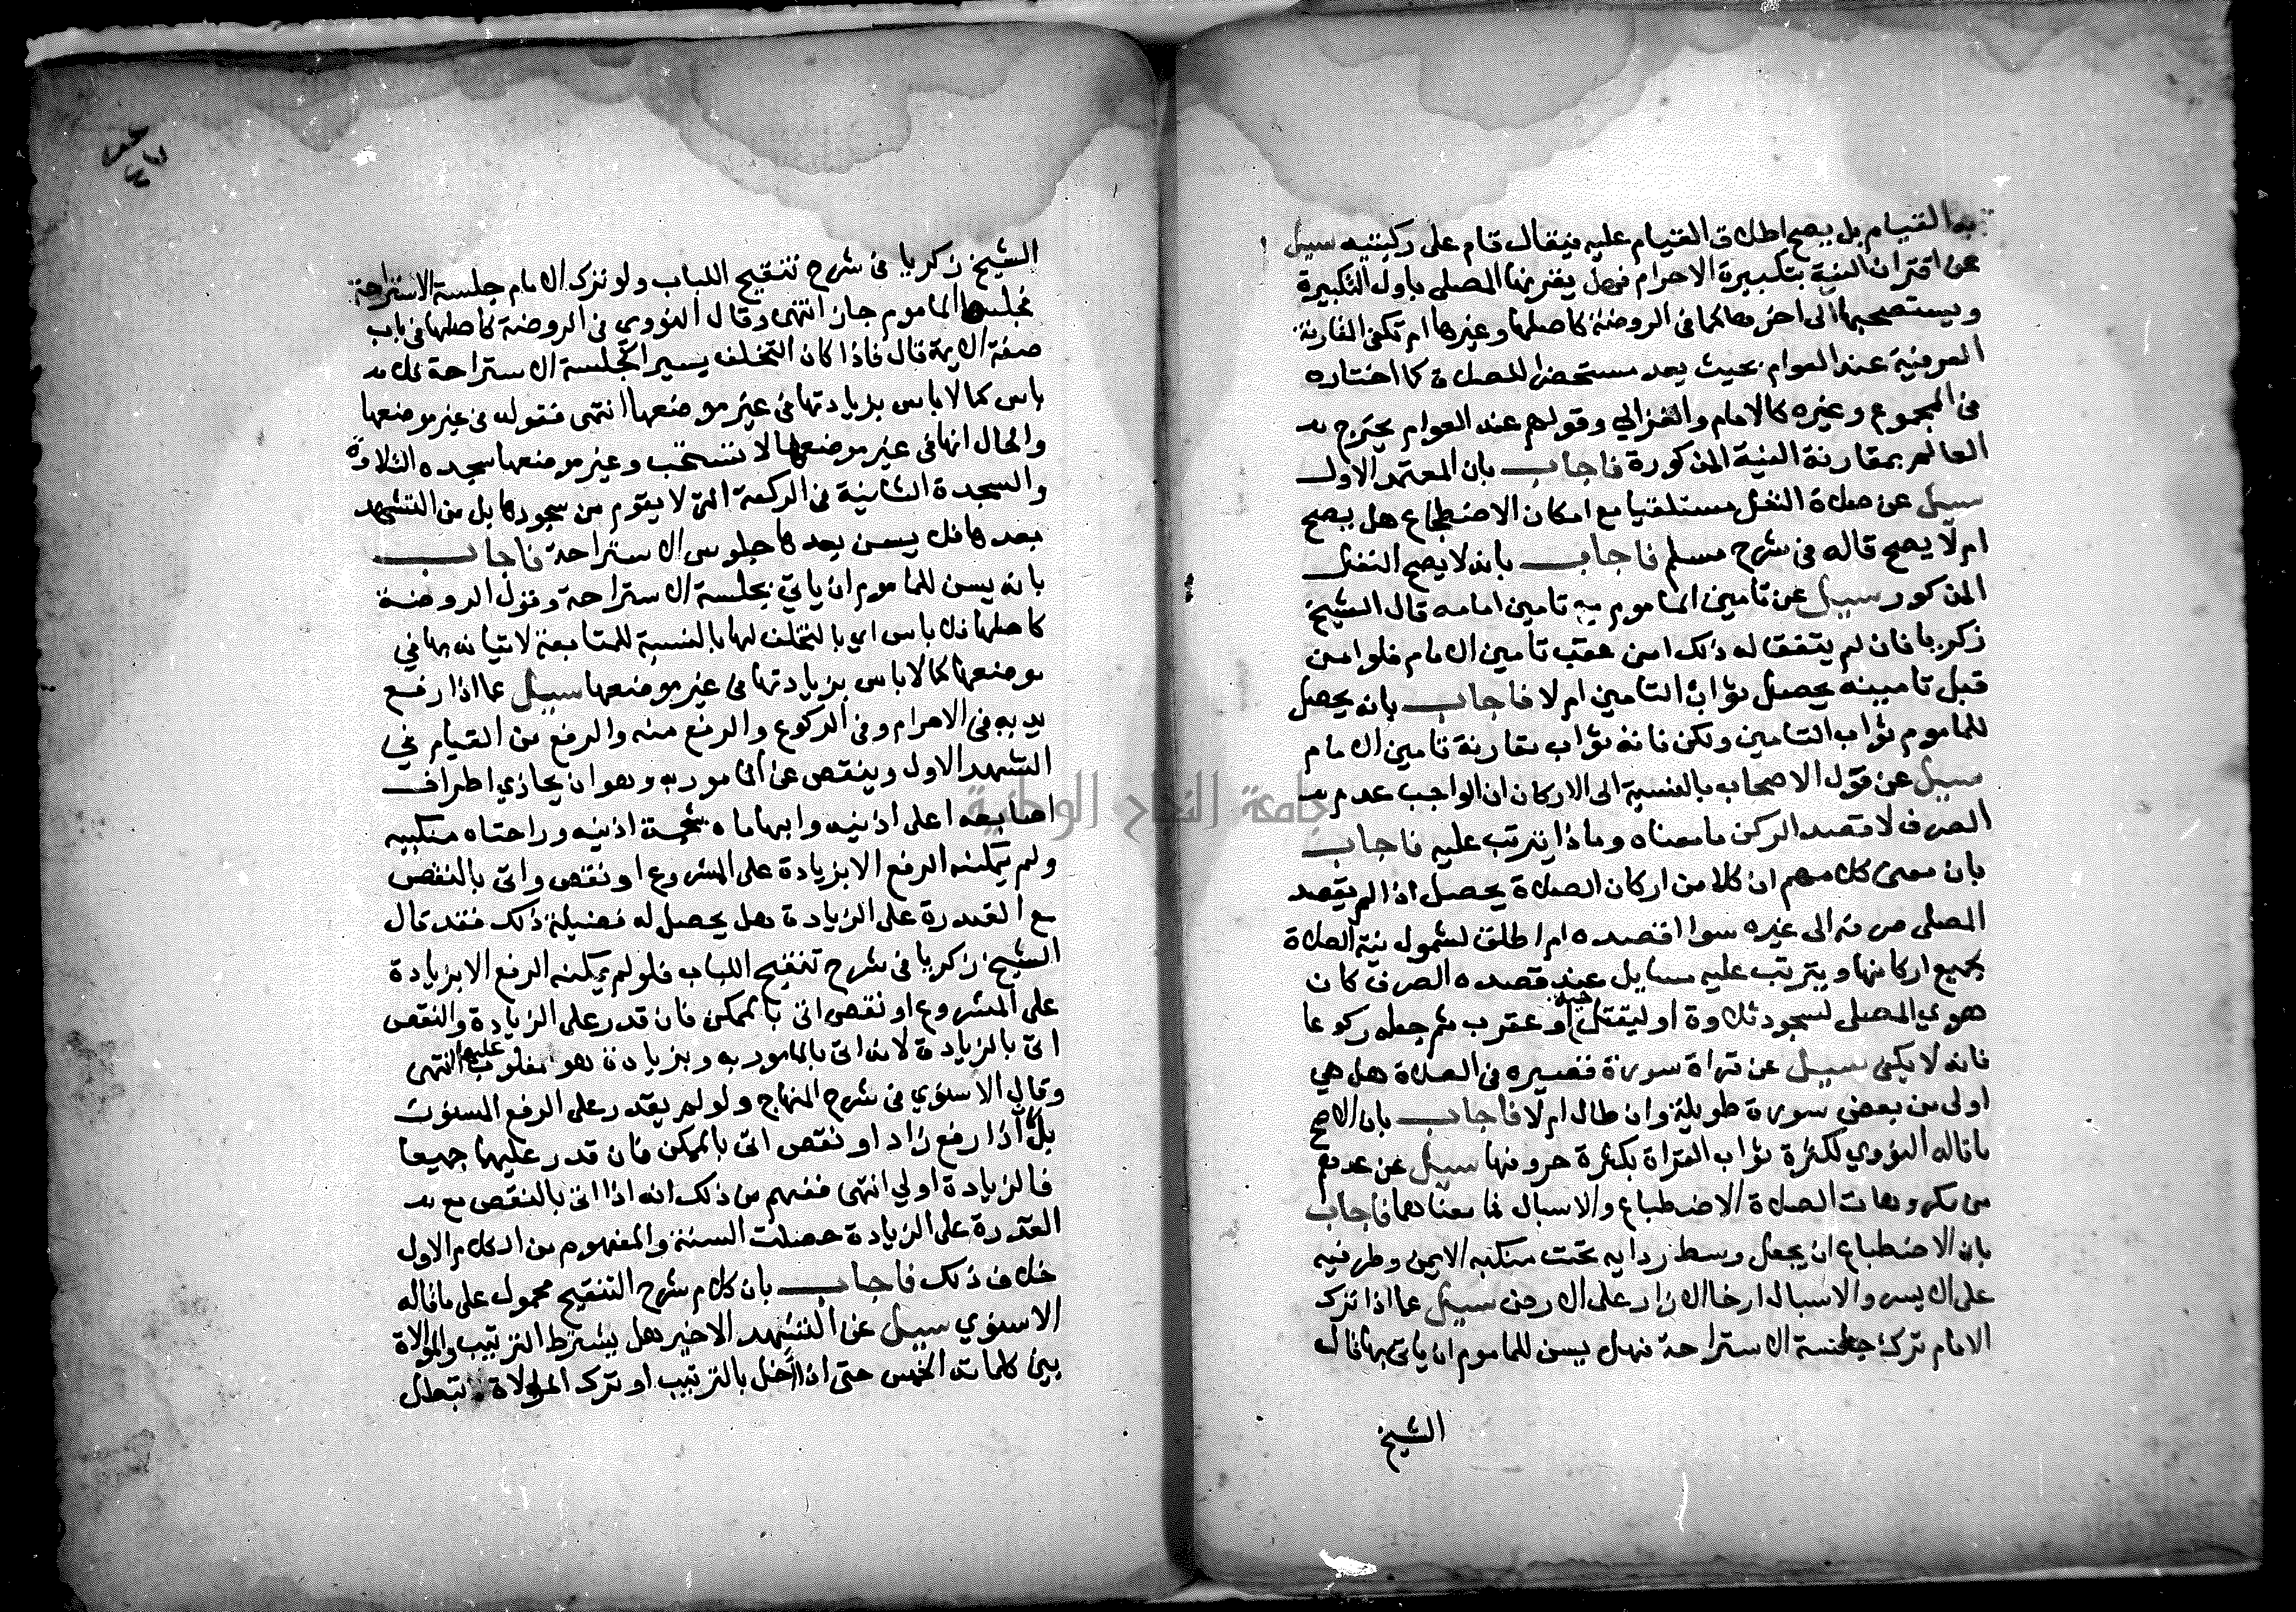 به القيام بل يصح اطلاق القيام عليه فيقال قام على ركبتيه سيل
عن اقتران النية بتكبيرة الاحرام فهل يقترنها المصلي باول التكبيرة
ويستصحبها الى اخرها كما في الروضة كاصلها وغيرها ام تكفي المقارنة
العرفية عند العوام بحيث يعد مستحضرا للصلاة كما اختاره
في المجموع وغيره كالامام والغزالي وقولهم عند العوام يحترج به
العالم بمقارنة النية المذكورة فاجاب بان المعتمد الاول
سيل عن صلاة النفل مستلقيا مع امكان الاضطجاع هل يصح
ام لا يصح قاله في شرح مسلم فاجاب بانه لا يصح التنفل
المذكور سيل عن تامين الماموم مع تامين امامه قال الشيخ
زكريا فان لم يتفق له ذلك امن عقب تامين الامام فلو امن
قبل تامينه يحصل ثواب التامين ام لا فاجاب بانه يحصل
للماموم ثواب التامين ولكن فاته ثواب مقارنة تامين الامام
سيل عن قول الاصحاب بالنسبة الى الاركان ان الواجب عدم
الصرف لا قصد الركن ما معناه وماذا يترتب عليه فاجاب
بان معنى كلامهم ان كلا من اركان الصلاة يحصل اذا لم يقصد
المصلي صرفه الى غيره سوا اقصده ام اطلق لشمول نية الصلاة
بجميع اركانها ويترتب عليه مسايل عند قصده الصرف كان
هوي المصلي لسجود تلاوة او ليقتل حية او عقرب ثم جعله ركوعا
فانه لا يكفي سيل عن قراة سورة قصيره في الصلاة هل هي
اولى من بعض سورة طويلة وان طال ام لا فاجاب بان الاصح
ما قاله النووي لكثرة ثواب القراة بكثرة حروفها سيل عن عدهم
من مكروهات الصلاة الاضطباع والاسبال فما معناهما فاجاب
بان الاضطباع ان يجعل وسط ردايه تحت منكبه الايمن وطرفيه
على الايسر والاسبال ارخا الازار على الارض سيل عما اذا ترك
الامام ترك جلسة الاستراحة فهل يسن للماموم ان ياتي بها قال
الشيخ
الشيخ زكريا في شرح تنقيح اللباب ولو ترك الامام جلسة الاستراحة
فجلسها الماموم جاز انتهى وقال النووي في الروضة كاصلها في باب
صفة الايمة قال فاذا كان التخلف يسير الجلسة الاستراحة فلا
باس كما لا باس بزيادتها في غير موضعها انتهى فقوله في غير موضعها
والحال انها في غير موضعها لا تستحب وغير موضعها سجده التلاوة
والسجدة الثانية في الركعة التي لا يقوم من سجودها بل من التشهد
بعدها فلا يسن بعدها جلوس الاستراحة فاجاب
بانه يسن للماموم ان ياتي بجلسة الاستراحة وقول الروضة
كاصلها فلا باس اي بالتخلف لها بالنسبة للمتابعة لاتيانه بها في
موضعها كما لا باس بزيادتها في غير موضعها سيل عما اذا رفع
يديه في الاحرام وفي الركوع والرفع منه والرفع من القيام في
التشهد الاول وينقص عن المامور به وهو ان يحاذي اطراف
اصابعه اعلى اذنيه وابهاماه شحمة اذنيه وراحتاه منكبيه
ولم يمكنه الرفع الا بزيادة على المشروع او نقص واتى بالنقص
مع القدرة على الزيادة هل يحصل له فضيلة ذلك فقد قال
الشيخ زكريا في شرح تنقيح اللباب فلو لم يمكنه الرفع الا بزيادة
على المشروع او نقص اتى بالممكن فان قدر على الزيادة والنقص
اتى بالزيادة لانه اتى بالمامور به وبزيادة هو مغلوب عليها انتهى
وقال الاسنوي في شرح المنهاج ولو لم يقدر على الرفع المسنون
بل اذا رفع زاد او نقص اتى بالممكن فان قدر عليهما جميعا
فالزيادة اولي انتهى ففهم من ذلك انه اذا اتى بالنقص مع
القدرة على الزيادة حصلت السنة والمفهوم من الكلام الاول
خلاف ذلك فاجاب بان كلام شرح التنقيح محمول على ما قاله
الاسنوي سيل عن التشهد الاخير هل يشترط الترتيب والموالاة
بين كلماته الخمس حتى اذا اخل بالترتيب او ترك الموالاة تبطل
جامعة النجاح الوطنية